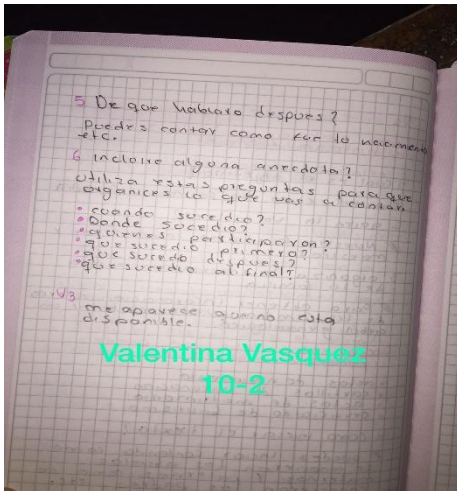 5 De que hablare despues?
Puedes contar como fue tu nacimiento
etc.
6 incluire alguna anecdota?
utiliza estas preguntas para que
organices lo que vas a contar.
• cuando sucedio?
• Donde sucedio?
• quienes participaron?
• que sucedio primero?
• que sucedio despues?
• que sucedio al final?
V3
me aparece que no esta
disponible.
Valentina Vasquez
10-2